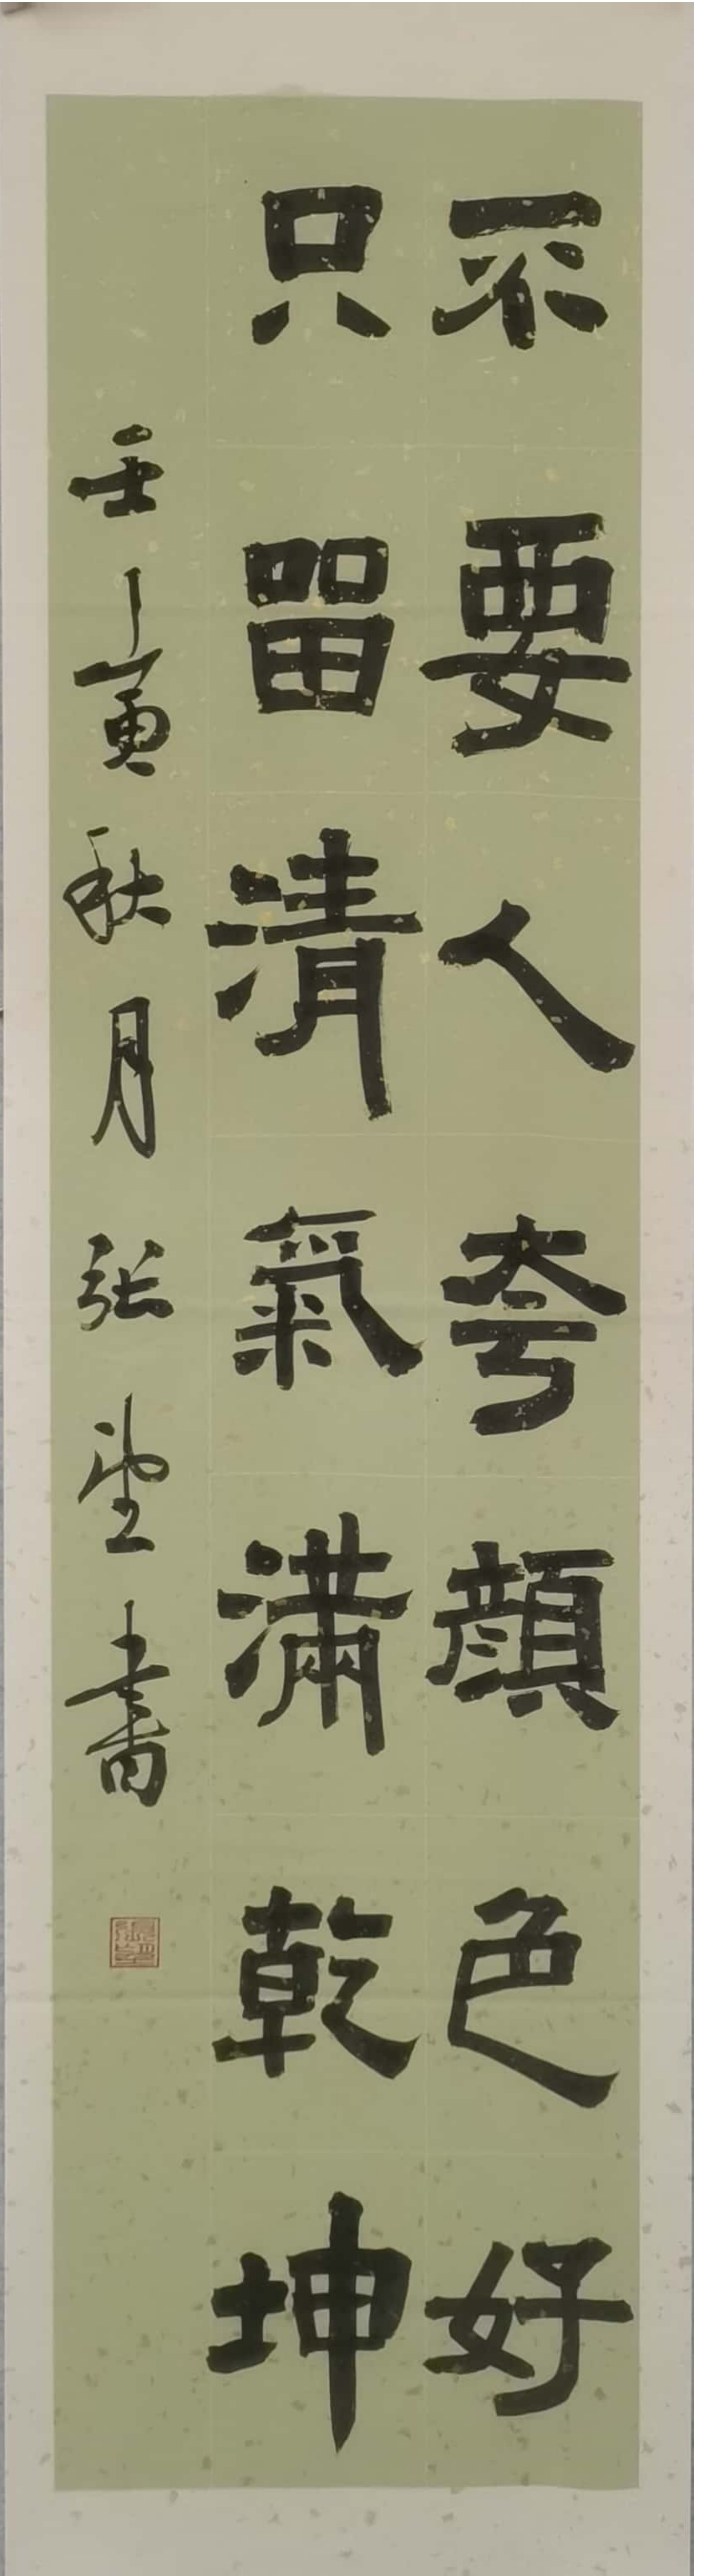 不要人夸顔色好
只留清氣滿乾坤
壬寅秋月张望書